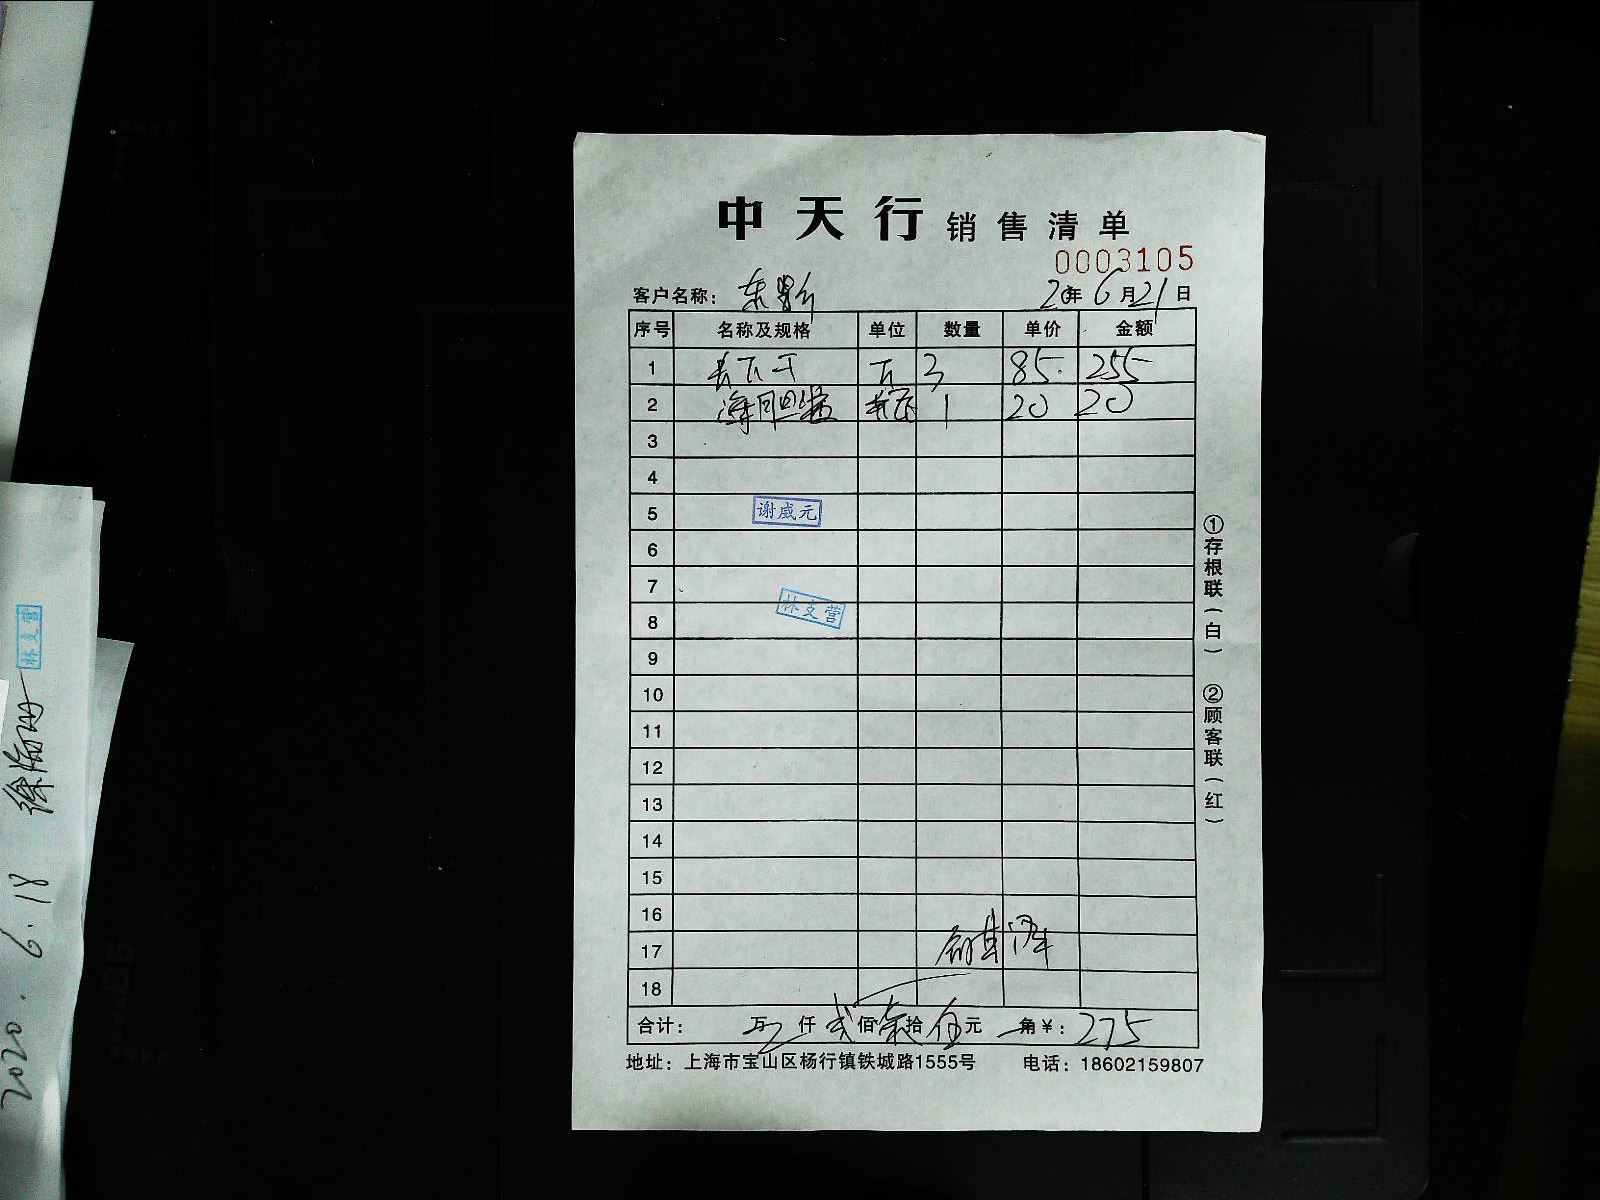 中天行 销售清单
0003105
客户名称：
20年6月21日
序号 名称及规格 单位 数量 单价 金额
1 3 85. 255
2 1 20 20
3
4
5 谢威元
6
7
8 林支营
9
10
11
12
13
14
15
16
17
18
合计： 万 仟 贰佰柒拾伍元 角 ¥：275
地址：上海市宝山区杨行镇铁城路1555号 电话：18602159807
①存根联（白） ②顾客联（红）
林支营
2020.6.18